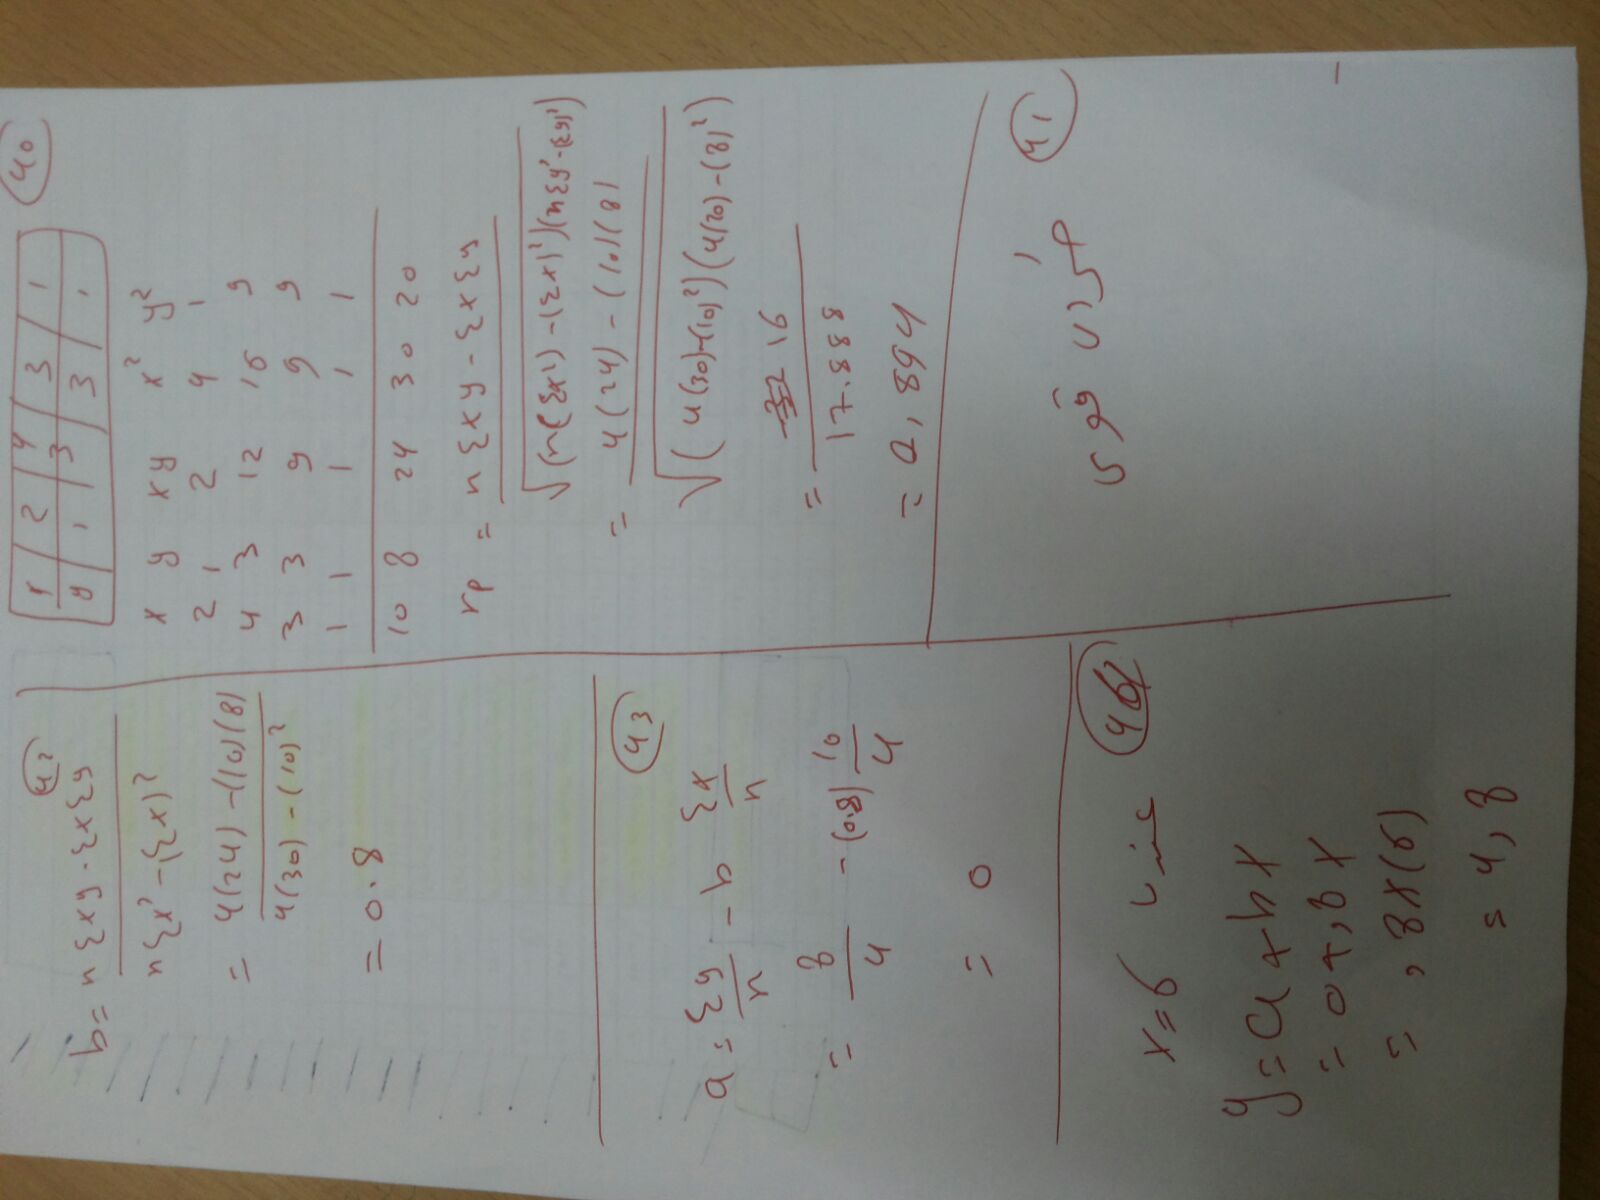 40
x 2 4 3 1
y 1 3 3 1
x y xy x² y²
2 1 2 4 1
4 3 12 16 9
3 3 9 9 9
1 1 1 1 1
10 8 24 30 20
rp = nΣxy - ΣxΣy
√(n(Σx²) - (Σx)²)(nΣy² - (Σy)²)
= 4(24) - (10)(8)
√(4(30)-(10)²)(4(20)-(8)²)
= 16
17.888
= 0,894
41
42
b = nΣxy - ΣxΣy
nΣx² - (Σx)²
= 4(24) - (10)(8)
4(30) - (10)²
= 0.8
43
a = Σy/n - b Σx/n
= 8/4 - (0.8) 10/4
= 0
x=6
y = a + bx
= 0 + ,8x
= ,8x(6)
= 4,8